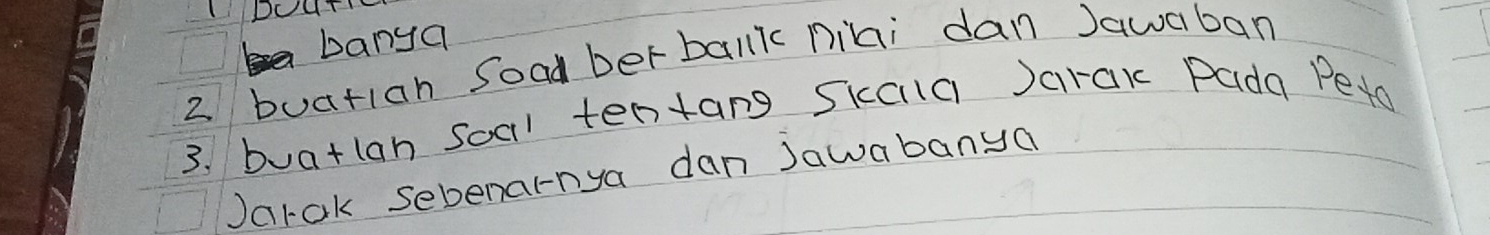 banya
2 buatlah Soal berbalik nilai dan Jawaban
3. buatlah Soal tentang Skala Jarak Pada Peta
Jarak Sebenarnya dan Jawabanya